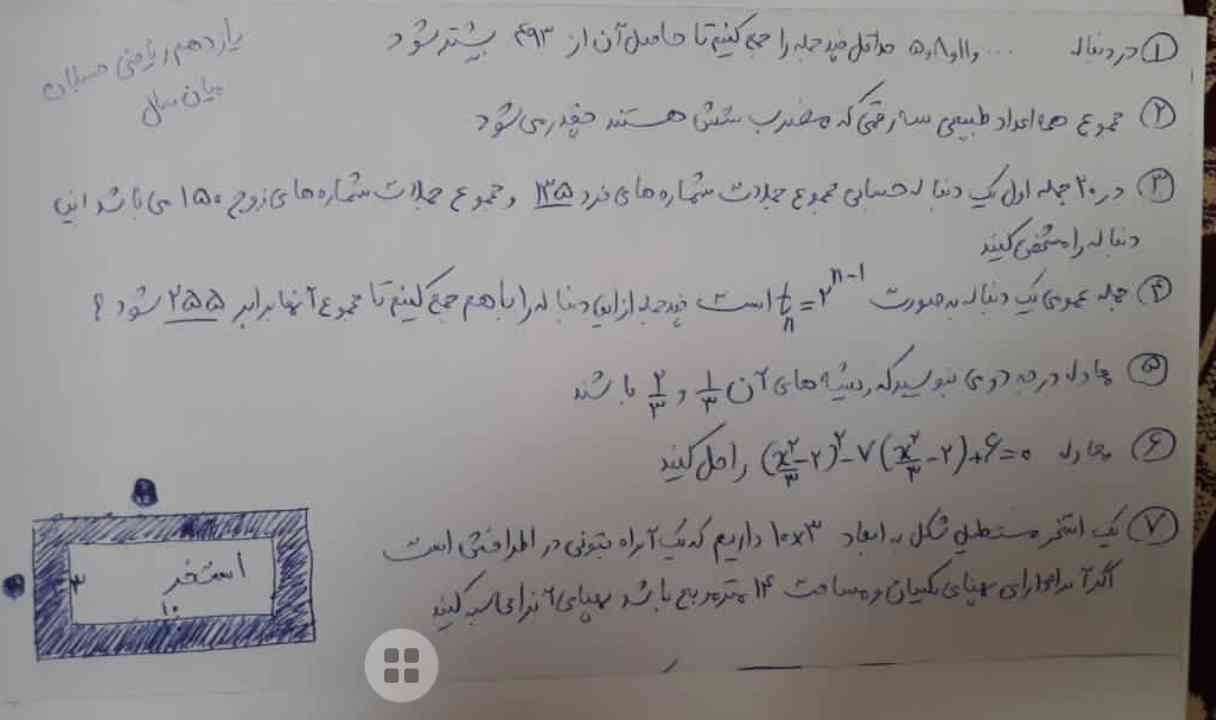 یازدهم ریاضی حسابان
میان سال
① در دنباله ... و۱۱و۸و۵ حداقل چند جمله را جمع کنیم تا حاصل آن از ۴۹۳ بیشتر شود
② مجموع همه اعداد طبیعی سه رقمی که مضرب شش هستند چقدر می شود
③ در ۲۰ جمله اول یک دنباله حسابی مجموع جملات شماره های فرد ۱۳۵ و مجموع جملات شماره های زوج ۱۵۰ می باشد این
دنباله را مشخص کنید
④ جمله عمومی یک دنباله به صورت tₙ = ۲ⁿ⁻¹ است چند جمله از این دنباله را باهم جمع کنیم تا مجموع آنها برابر ۲۵۵ شود ؟
⑤ معادله درجه دومی بنویسید که ریشه های آن ۱/۳ و ۲/۳ باشند
⑥ معادله (x²/۳ - ۲)² - ۷(x²/۳ - ۲) + ۶ = ۰ را حل کنید
⑦ یک استخر مستطیل شکل به ابعاد ۱۰×۳ داریم که یک آبراه بتونی در اطرافش است
اگر آبراه دارای پهنای یکسان و مساحت ۱۴ مترمربع باشد پهنای آنرا محاسبه کنید
استخر
۳
۱۰